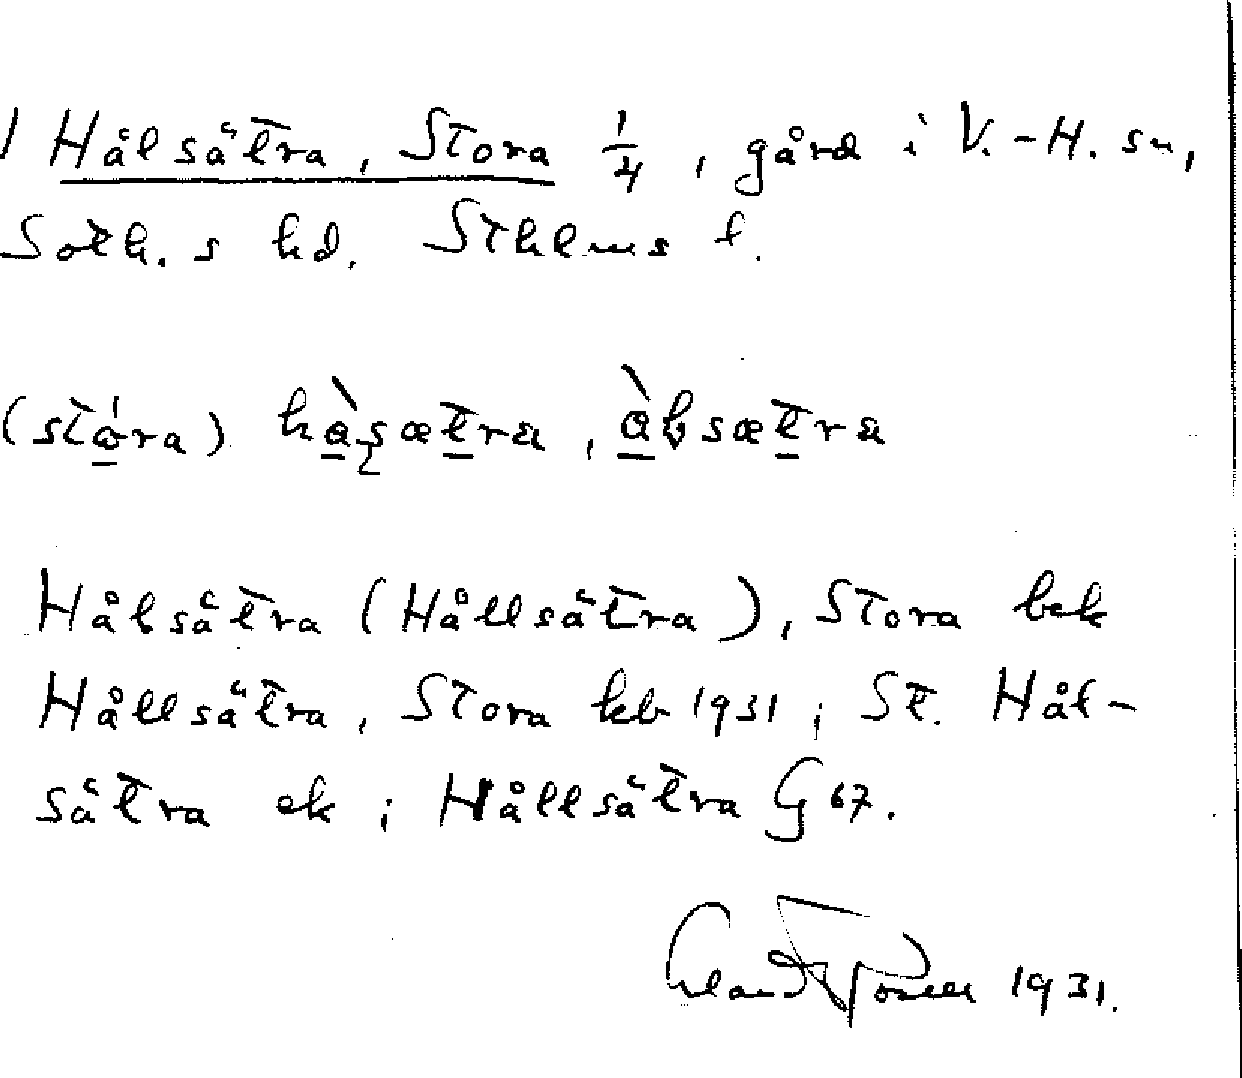 Hålsätra, Stora 1/4, gård i V.-H. sn,
Soth. s hd. Sthlms l.
(stóra)
Hålsätra (Hållsätra), Stora bek
Hållsätra, Stora kb 1931; St. Hål-
sätra ek; Hållsätra G 67.
1931.